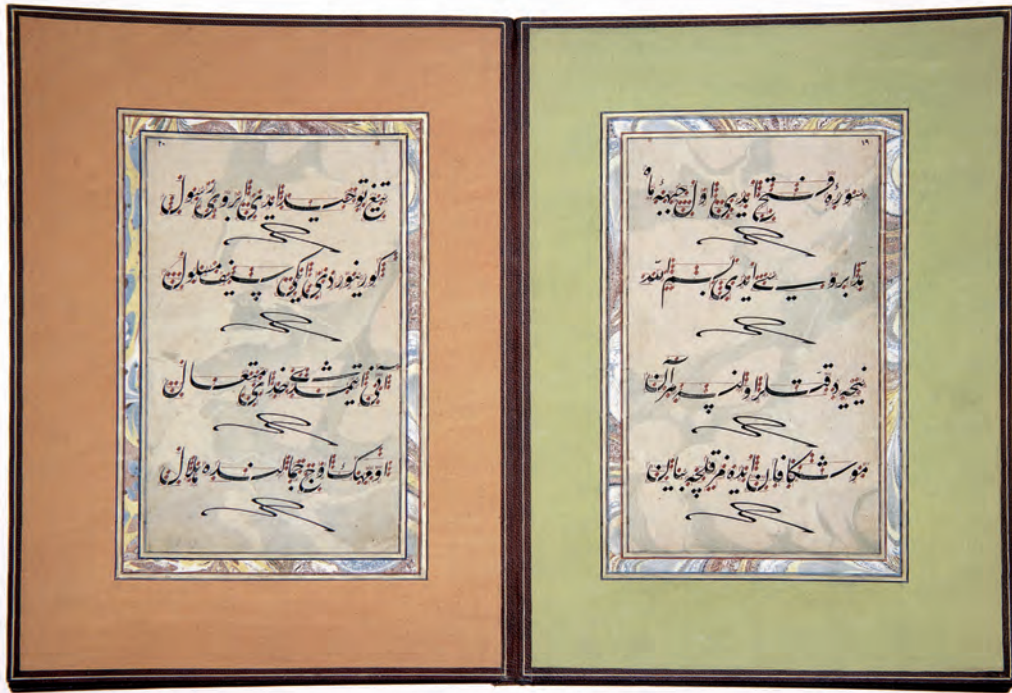 ١٩
سورۀ فتح ایدی اول جبهۀ ماه
مد ابروسی ایدی بسم الله
نیجه دقتلر اولنب هر آن
موشکافان ایده
٢٠
تیغ توحید ایدی ابروی رسول
کورینوردی ایکی سیف مسلول
آنی ایتمشدی خدای متعال
اوج جمالنده هلال